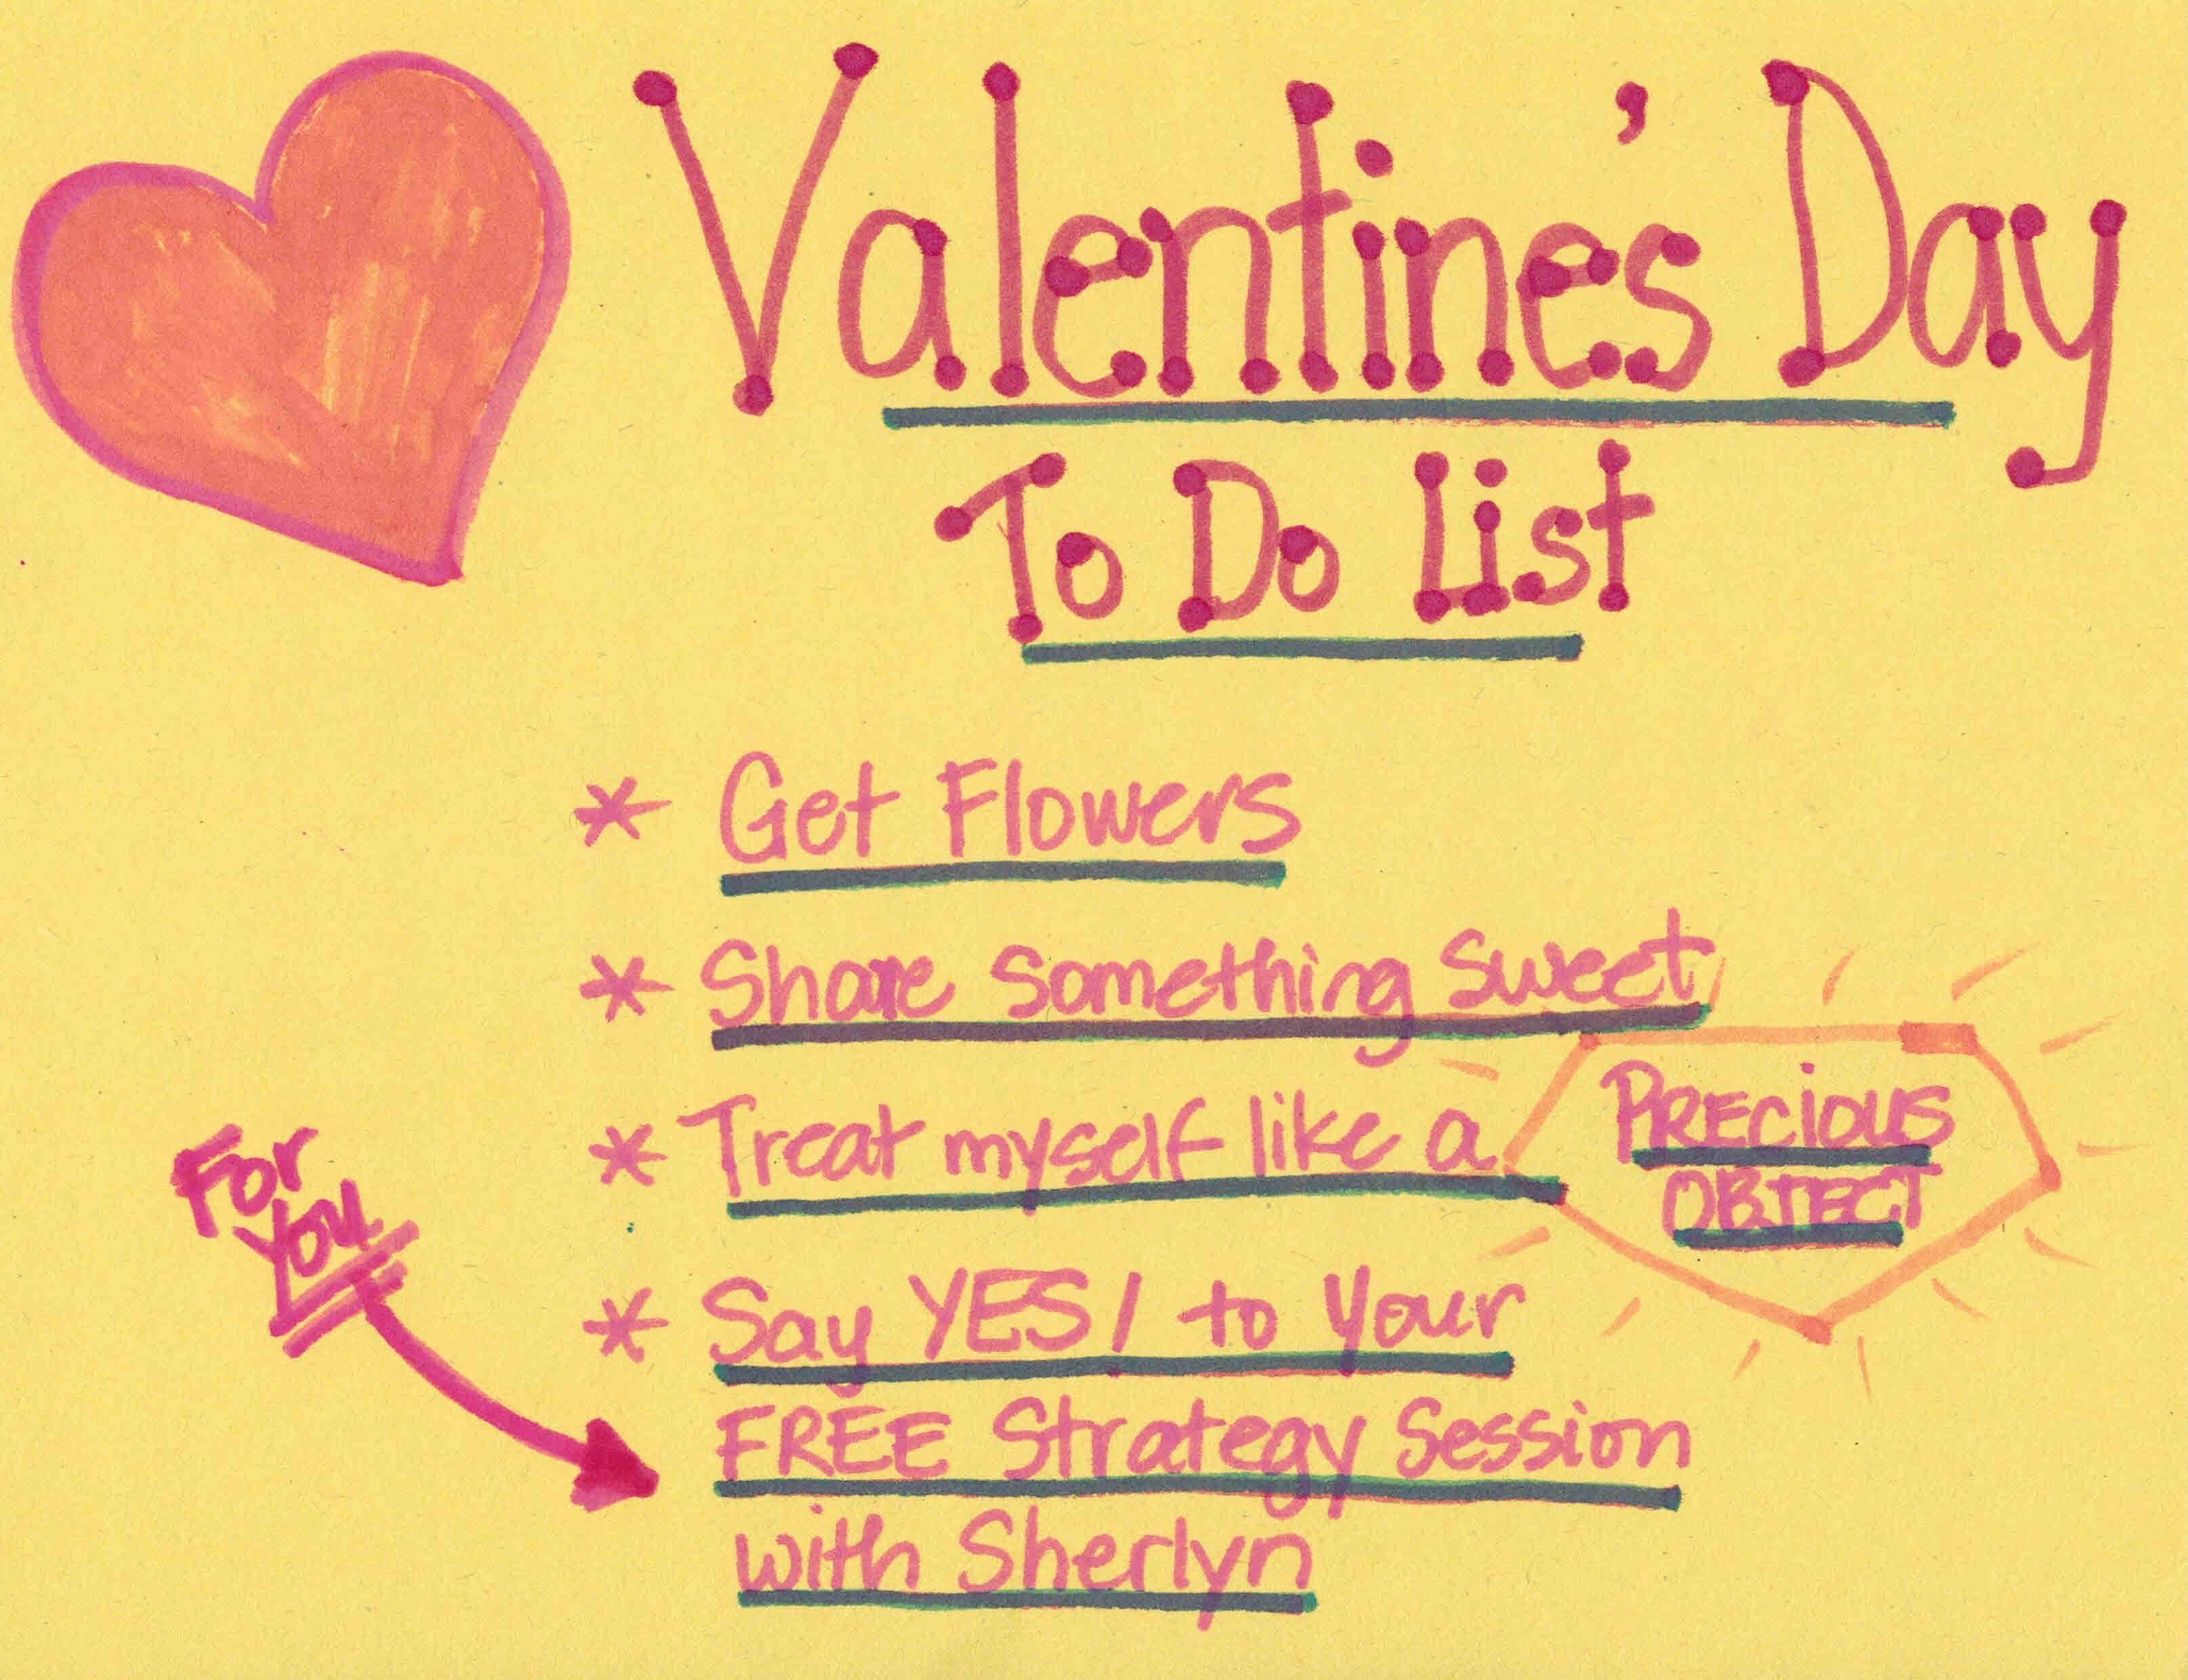 Valentine's Day
To Do List
* Get Flowers
* Share Something Sweet
* Treat myself like a PRECIOUS
OBJECT
For
You
* Say YES! to Your
FREE Strategy Session
with Sherlyn